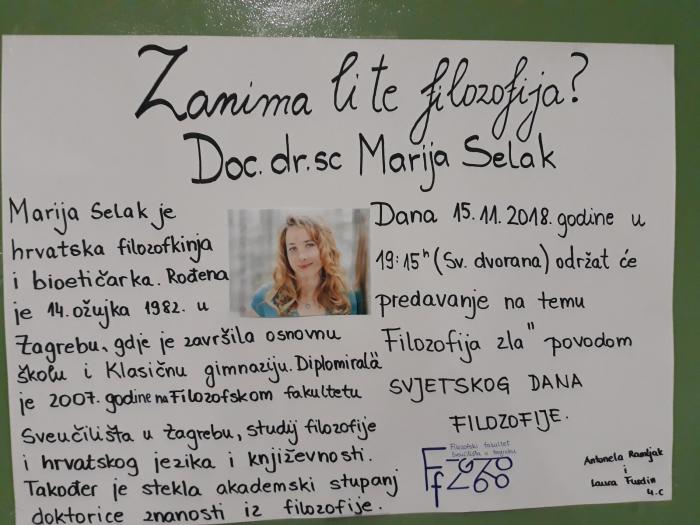 Zanima li te filozofija?
Doc. dr. sc Marija Selak
Marija Selak je
hrvatska filozofkinja
i bioetičarka. Rođena
je 14. ožujka 1982. u
Zagrebu, gdje je završila osnovnu
školu i Klasičnu gimnaziju. Diplomirala
je 2007. godine na Filozofskom fakultetu
Sveučilišta u Zagrebu, studij filozofije
i hrvatskog jezika i književnosti.
Također je stekla akademski stupanj
doktorice znanosti iz filozofije.
Dana 15. 11. 2018. godine u
19:15h (Sv. dvorana) održat će
predavanje na temu
"Filozofija zla" povodom
SVJETSKOG DANA
FILOZOFIJE.
Filozofski fakultet
Sveučilišta u Zagrebu
Antonela
i
Laura
4.c